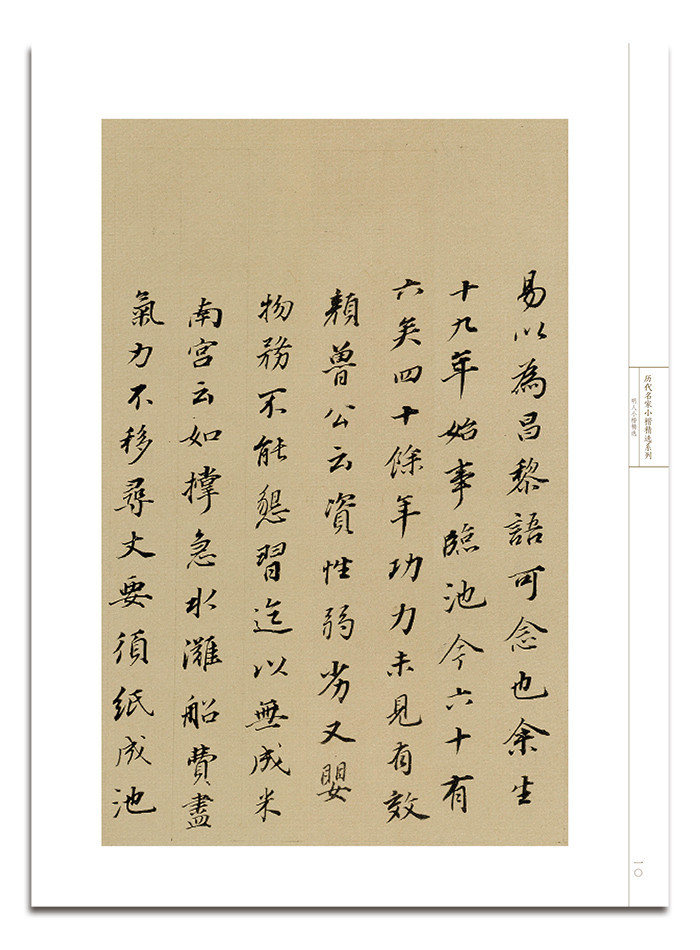 易以為昌黎語可念也余生
十九年始事臨池今六十有
六矣四十餘年功力未見有效
顏魯公云資性弱劣又嬰
物務不能懇習迄以無成米
南宮云如撑急水灘船費盡
氣力不移尋丈要須紙成池
历代名家小楷精选系列
明人小楷精选
一〇